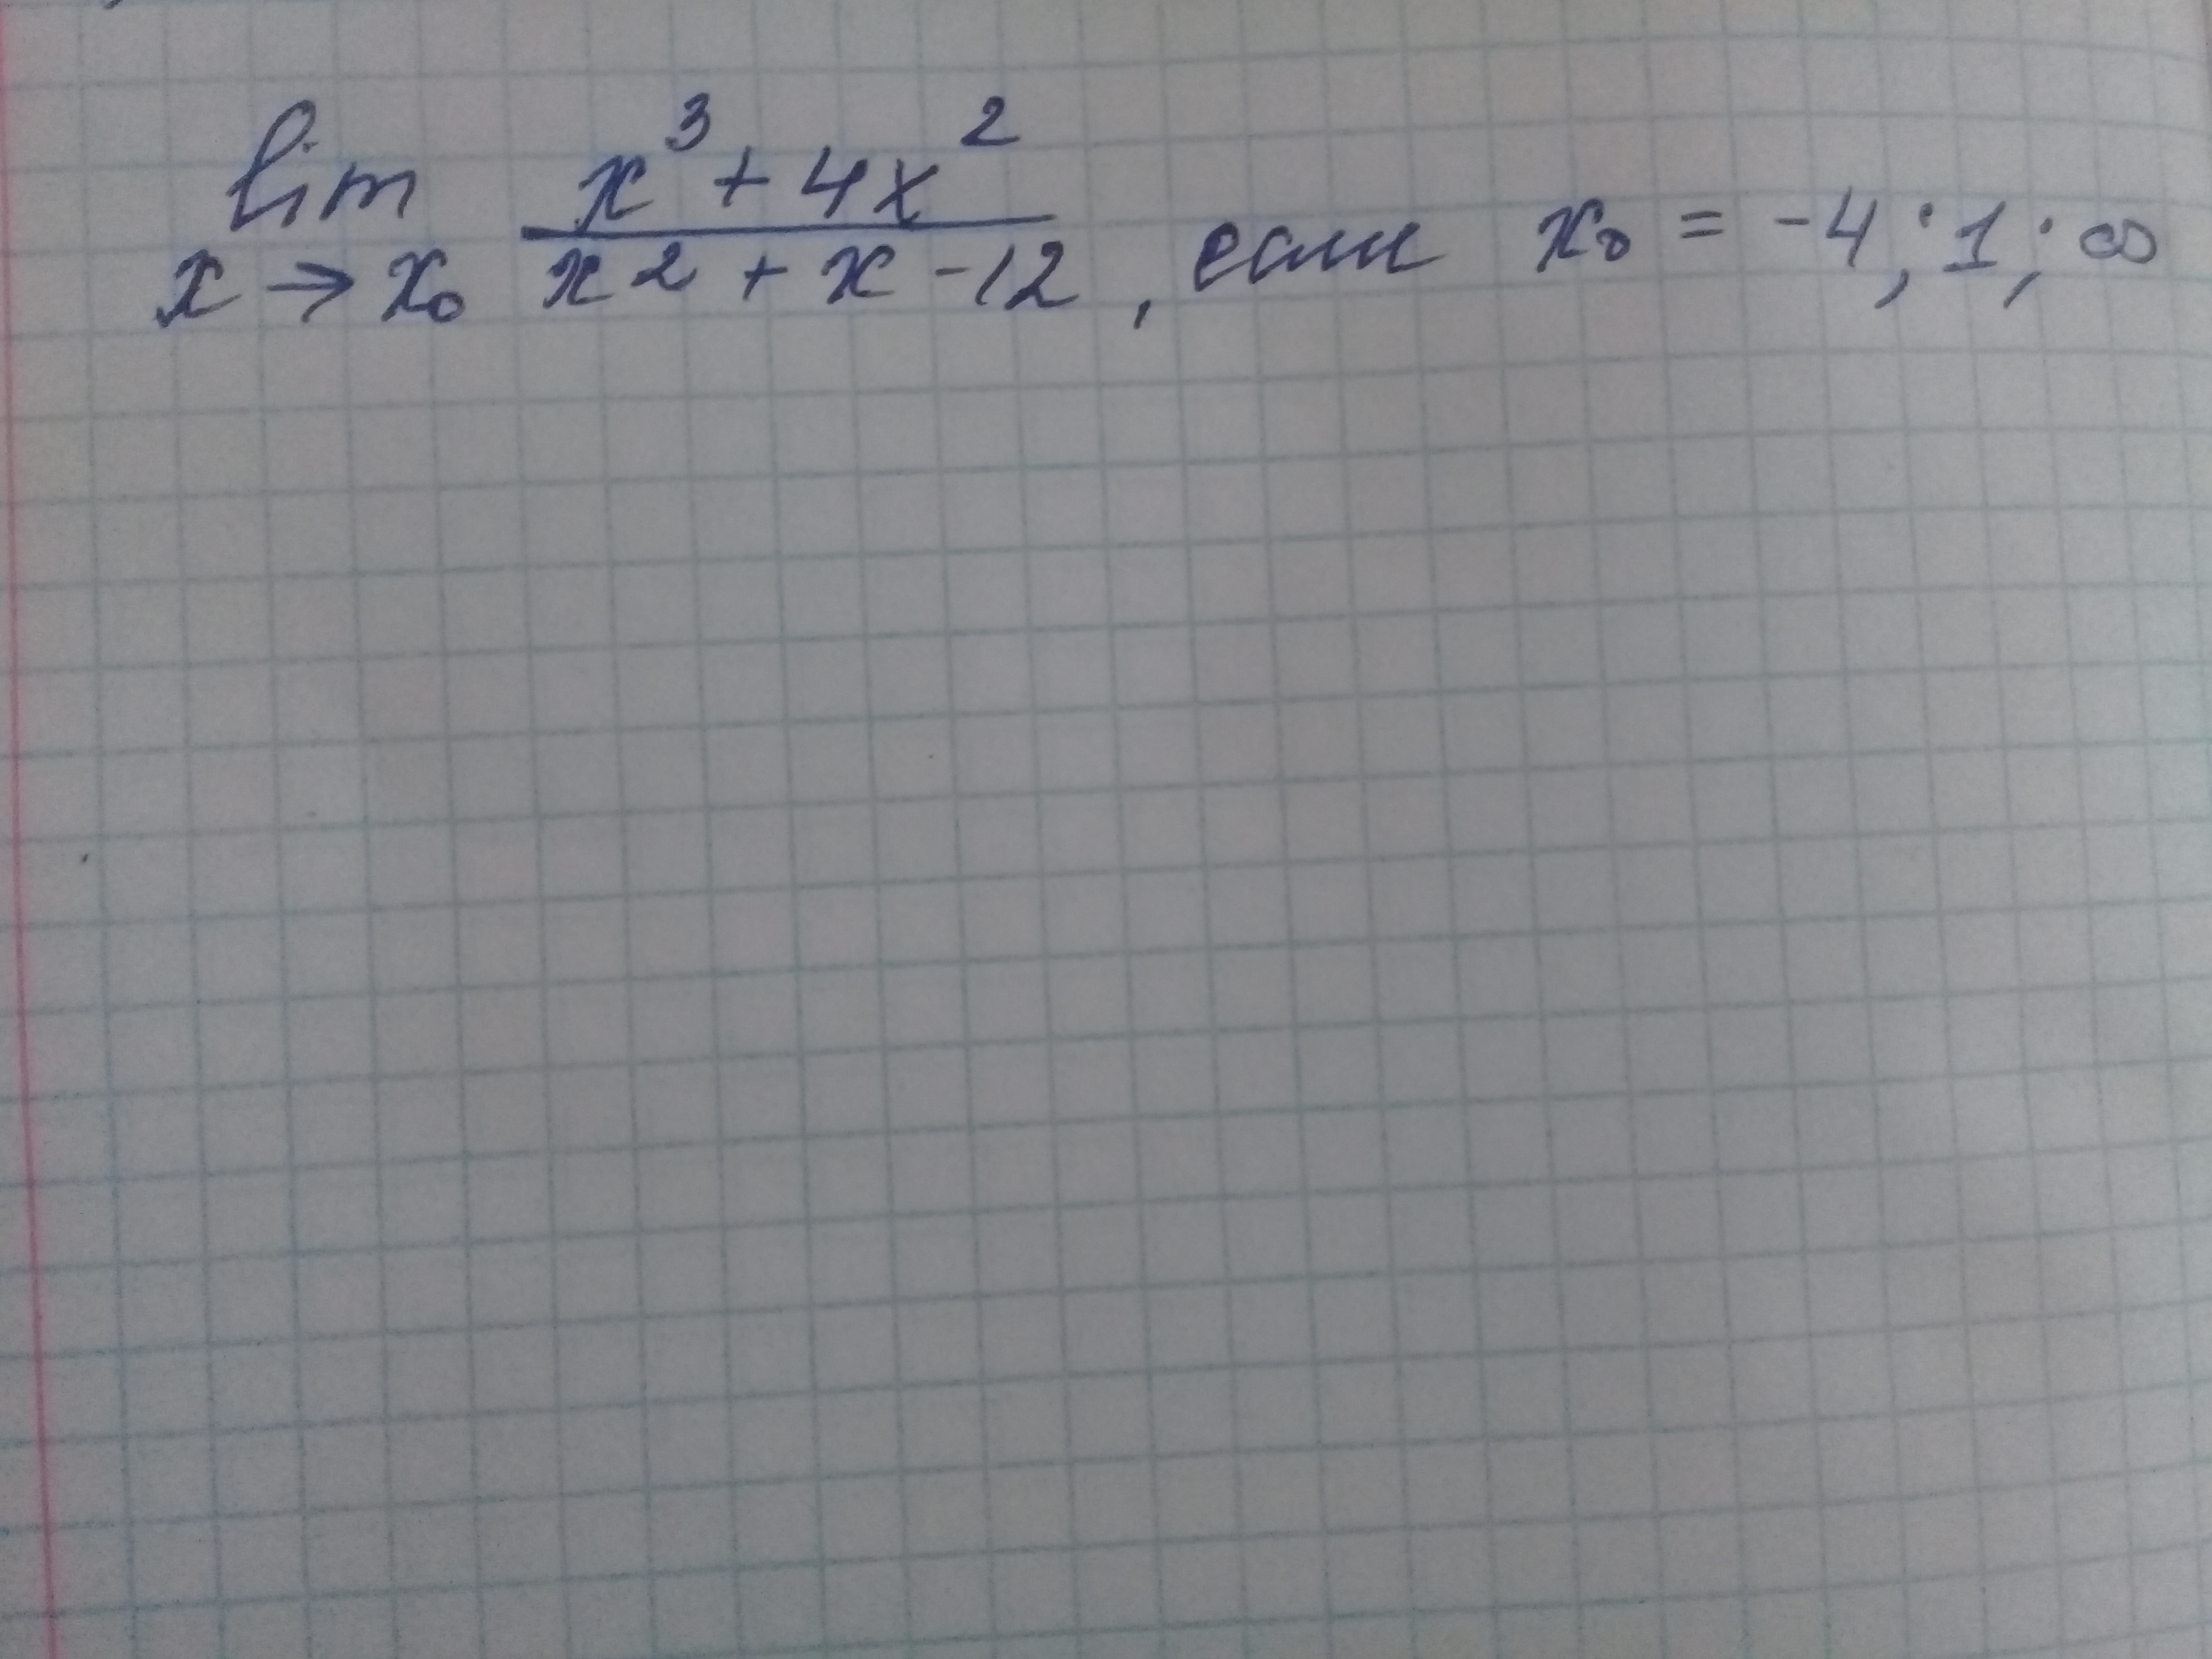 lim x→x₀ (x³ + 4x²)/(x2 + x - 12), если x₀ = -4; 1; ∞